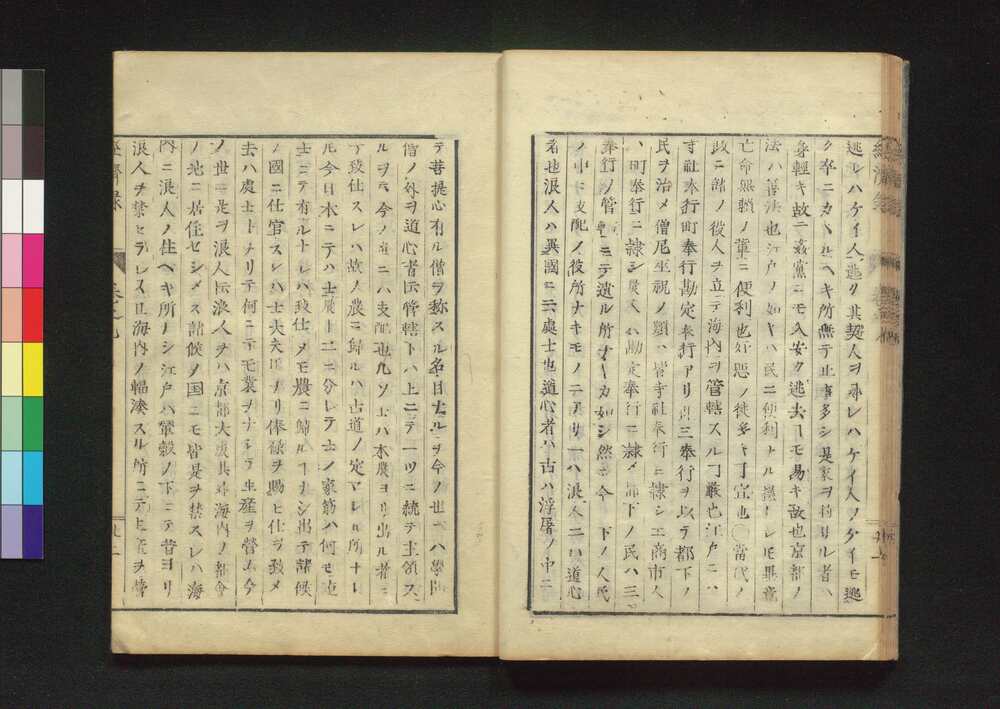 逃レハケイ人ノ逃リ其契人ヲ尋レハケイ人ノタイモ逃
ク卒ニカヽルヘキ所無テ止事多シ是家ヲ狩リル者ハ
身輕キ故ニ姦黨ニモ入安ク逃去ーモ易キ故也京都ノ
法ハ善法也江戸ノ如キハ民ニ便利ナル レモ畢竟
亡命無頼ノ輩ニ便利也奸惡ノ徒多キヿ宜也〇當代ノ
政ニ諸ノ役人ヲ立テ海内ヲ管轄スルヿ嚴也江戸ニハ
寺社奉行町奉行勘定奉行アリ 三奉行ヲ以テ都下ノ
民ヲ治メ僧尼巫祝ノ類ハ皆寺社奉行ニ隷シ工商市人
ハ町奉行ニ隷シ農人ハ勘定奉行ニ隷メ都下ノ民ハ三
奉行ノ管 ニテ遺ル所ナーカ如シ然 今 下ノ人民
ノ中ニ支配ノ役所ナキモノニアリ一ハ浪人二ハ道心
者也浪人ハ異國ニ云處士也道心者ハ古ハ浮屠ノ中ニ
經濟録 卷 九
テ菩提心有ル僧ヲ称スル名目ナルヲ今ノ世 ハ學
僧ノ外ヲ道心者 管轄トハ上ニテ一ツニ統テ主領ス
ルヲ云今ノ 二ハ支配也凢ソ士ハ本農ヨリ出ル者ニ
テ致仕スレハ故ノ農ニ歸ルハ古道ノ定マレル所ナレ
ル今日本ニテハ士農 ニ二分レテ士ノ家筋ハ何 迠
士ニテ有ルナレハ致仕メモ農ニ歸ルーナシ出テ諸候
ノ國ニ仕官スレハ士大夫 ナリ俸禄ヲ賜ヒ仕ヲ致メ
去ハ處士トナリテ何ニテモ業ヲナシテ生産ヲ營ム今
ノ世ニ是ヲ浪人 浪人ヲハ京都大坂其外海内ノ都會
ノ地ニ居住セシメス諸候ノ国ニモ皆是ヲ禁スレハ海
内ニ浪人ノ住ヘキ所ナシ江戸ハ輦轂ノ下ニテ昔ヨリ
浪人ヲ禁セラレス且海内ノ輻湊スル所ニテヒ ヲ營
經濟録 卷之九 廾二